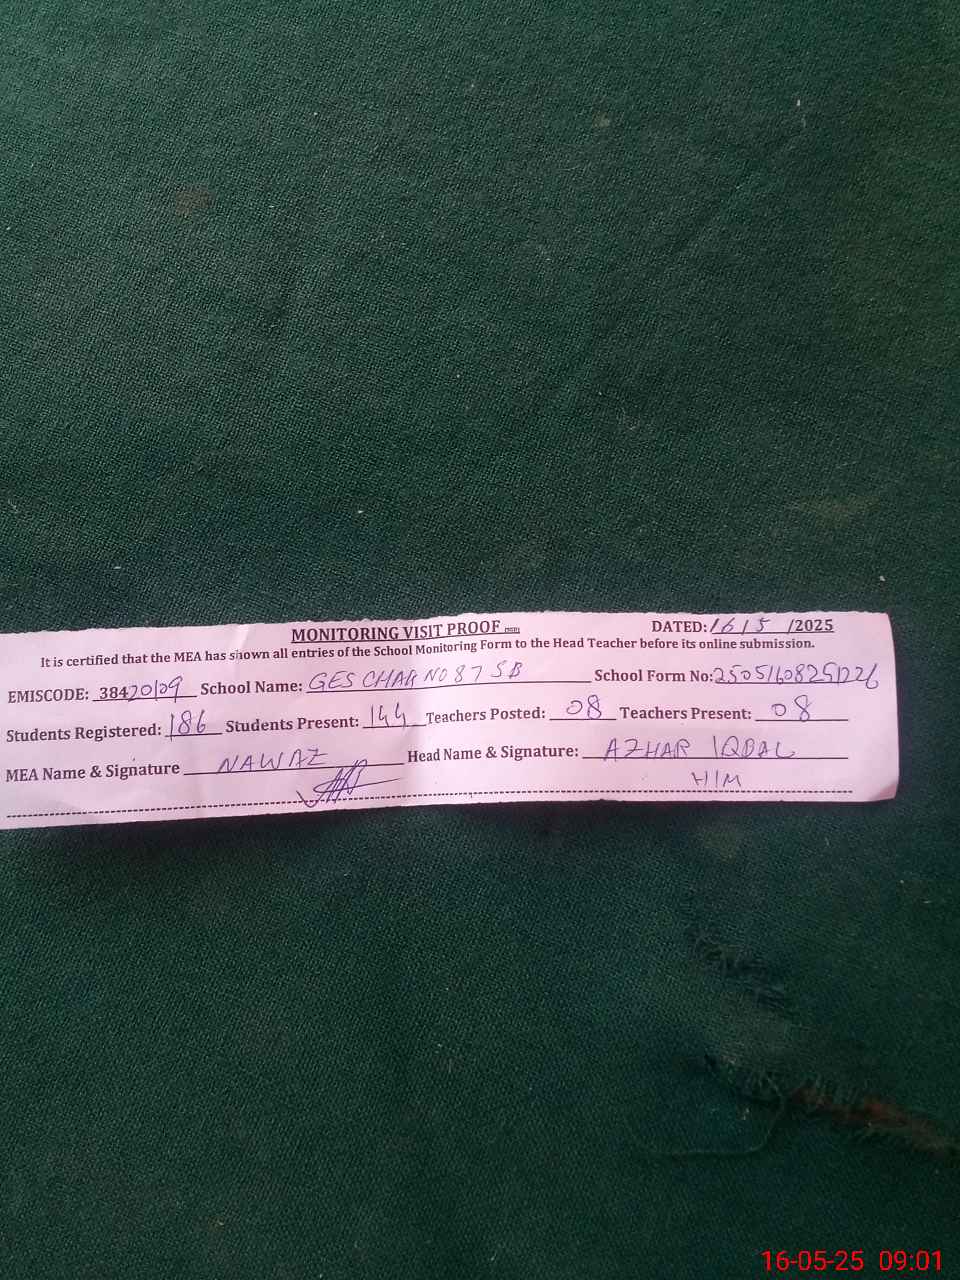 MONITORING VISIT PROOF DATED: 16/5/2025
It is certified that the MEA has shown all entries of the School Monitoring Form to the Head Teacher before its online submission.
EMISCODE: 38420109 School Name: GES CHAK NO 87 SB School Form No:
Students Registered: 186 Students Present: 144 Teachers Posted: 08 Teachers Present: 08
MEA Name & Signature NAWAZ Head Name & Signature: AZHAR IQBAL
H/M
16-05-25 09:01